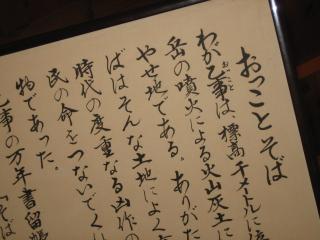 おっことそば
わが乙事は、標高千メートルに
おっこと
岳の噴火による火山灰土に
やせ地である。ありがた
ばはそんな土地によく
時代の度重なる凶作の
民の命をつないでく
物であった。
乙事の万年書留帳
「そば